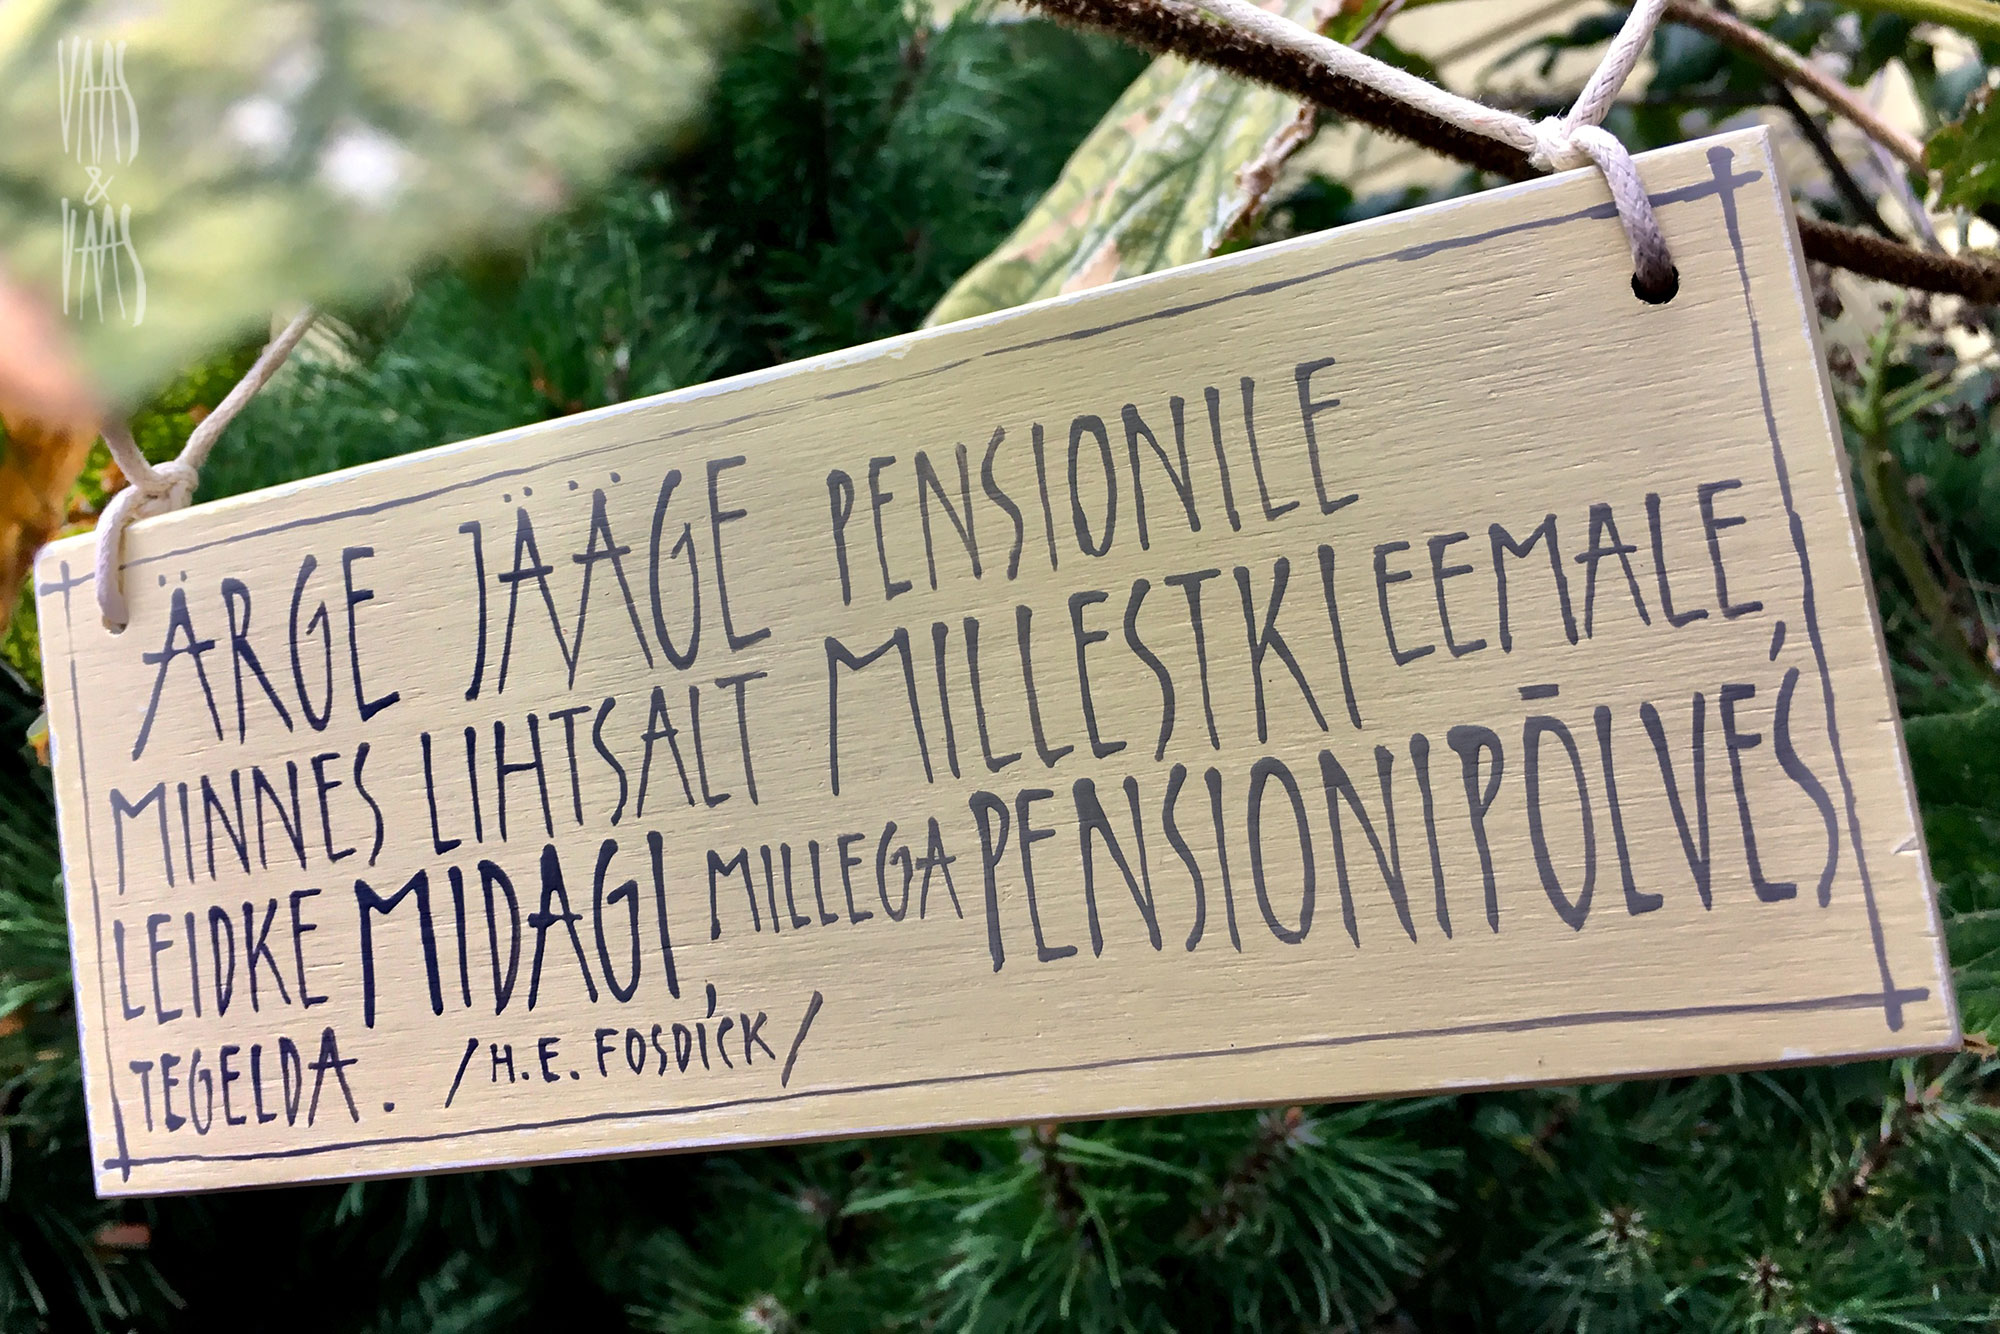 VAAS
&
VAAS
ÄRGE JÄÄGE PENSIONILE
MINNES LIHTSALT MILLESTKI EEMALE,
LEIDKE MIDAGI, MILLEGA PENSIONIPŌLVES
TEGELDA. /H.E. FOSDICK/